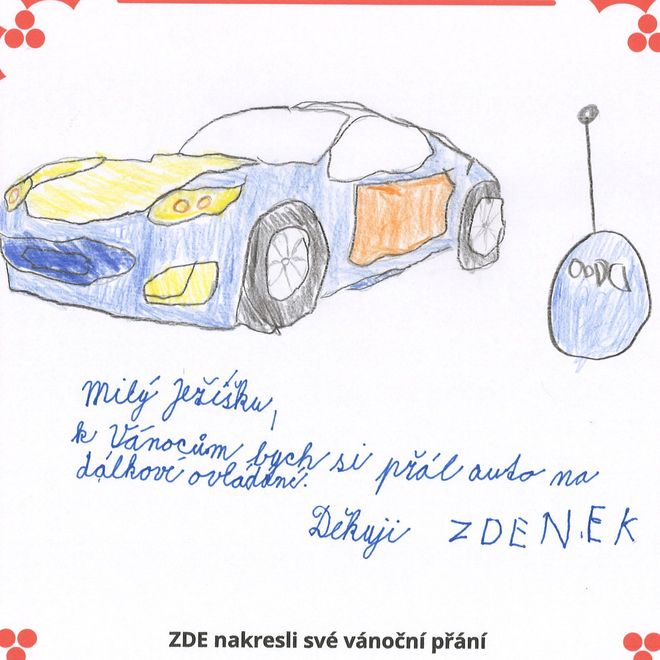 Milý Ježíšku,
k Vánocům bych si přál auto na
dálkové ovládání.
Děkuji ZDENEK
ZDE nakresli své vánoční přání